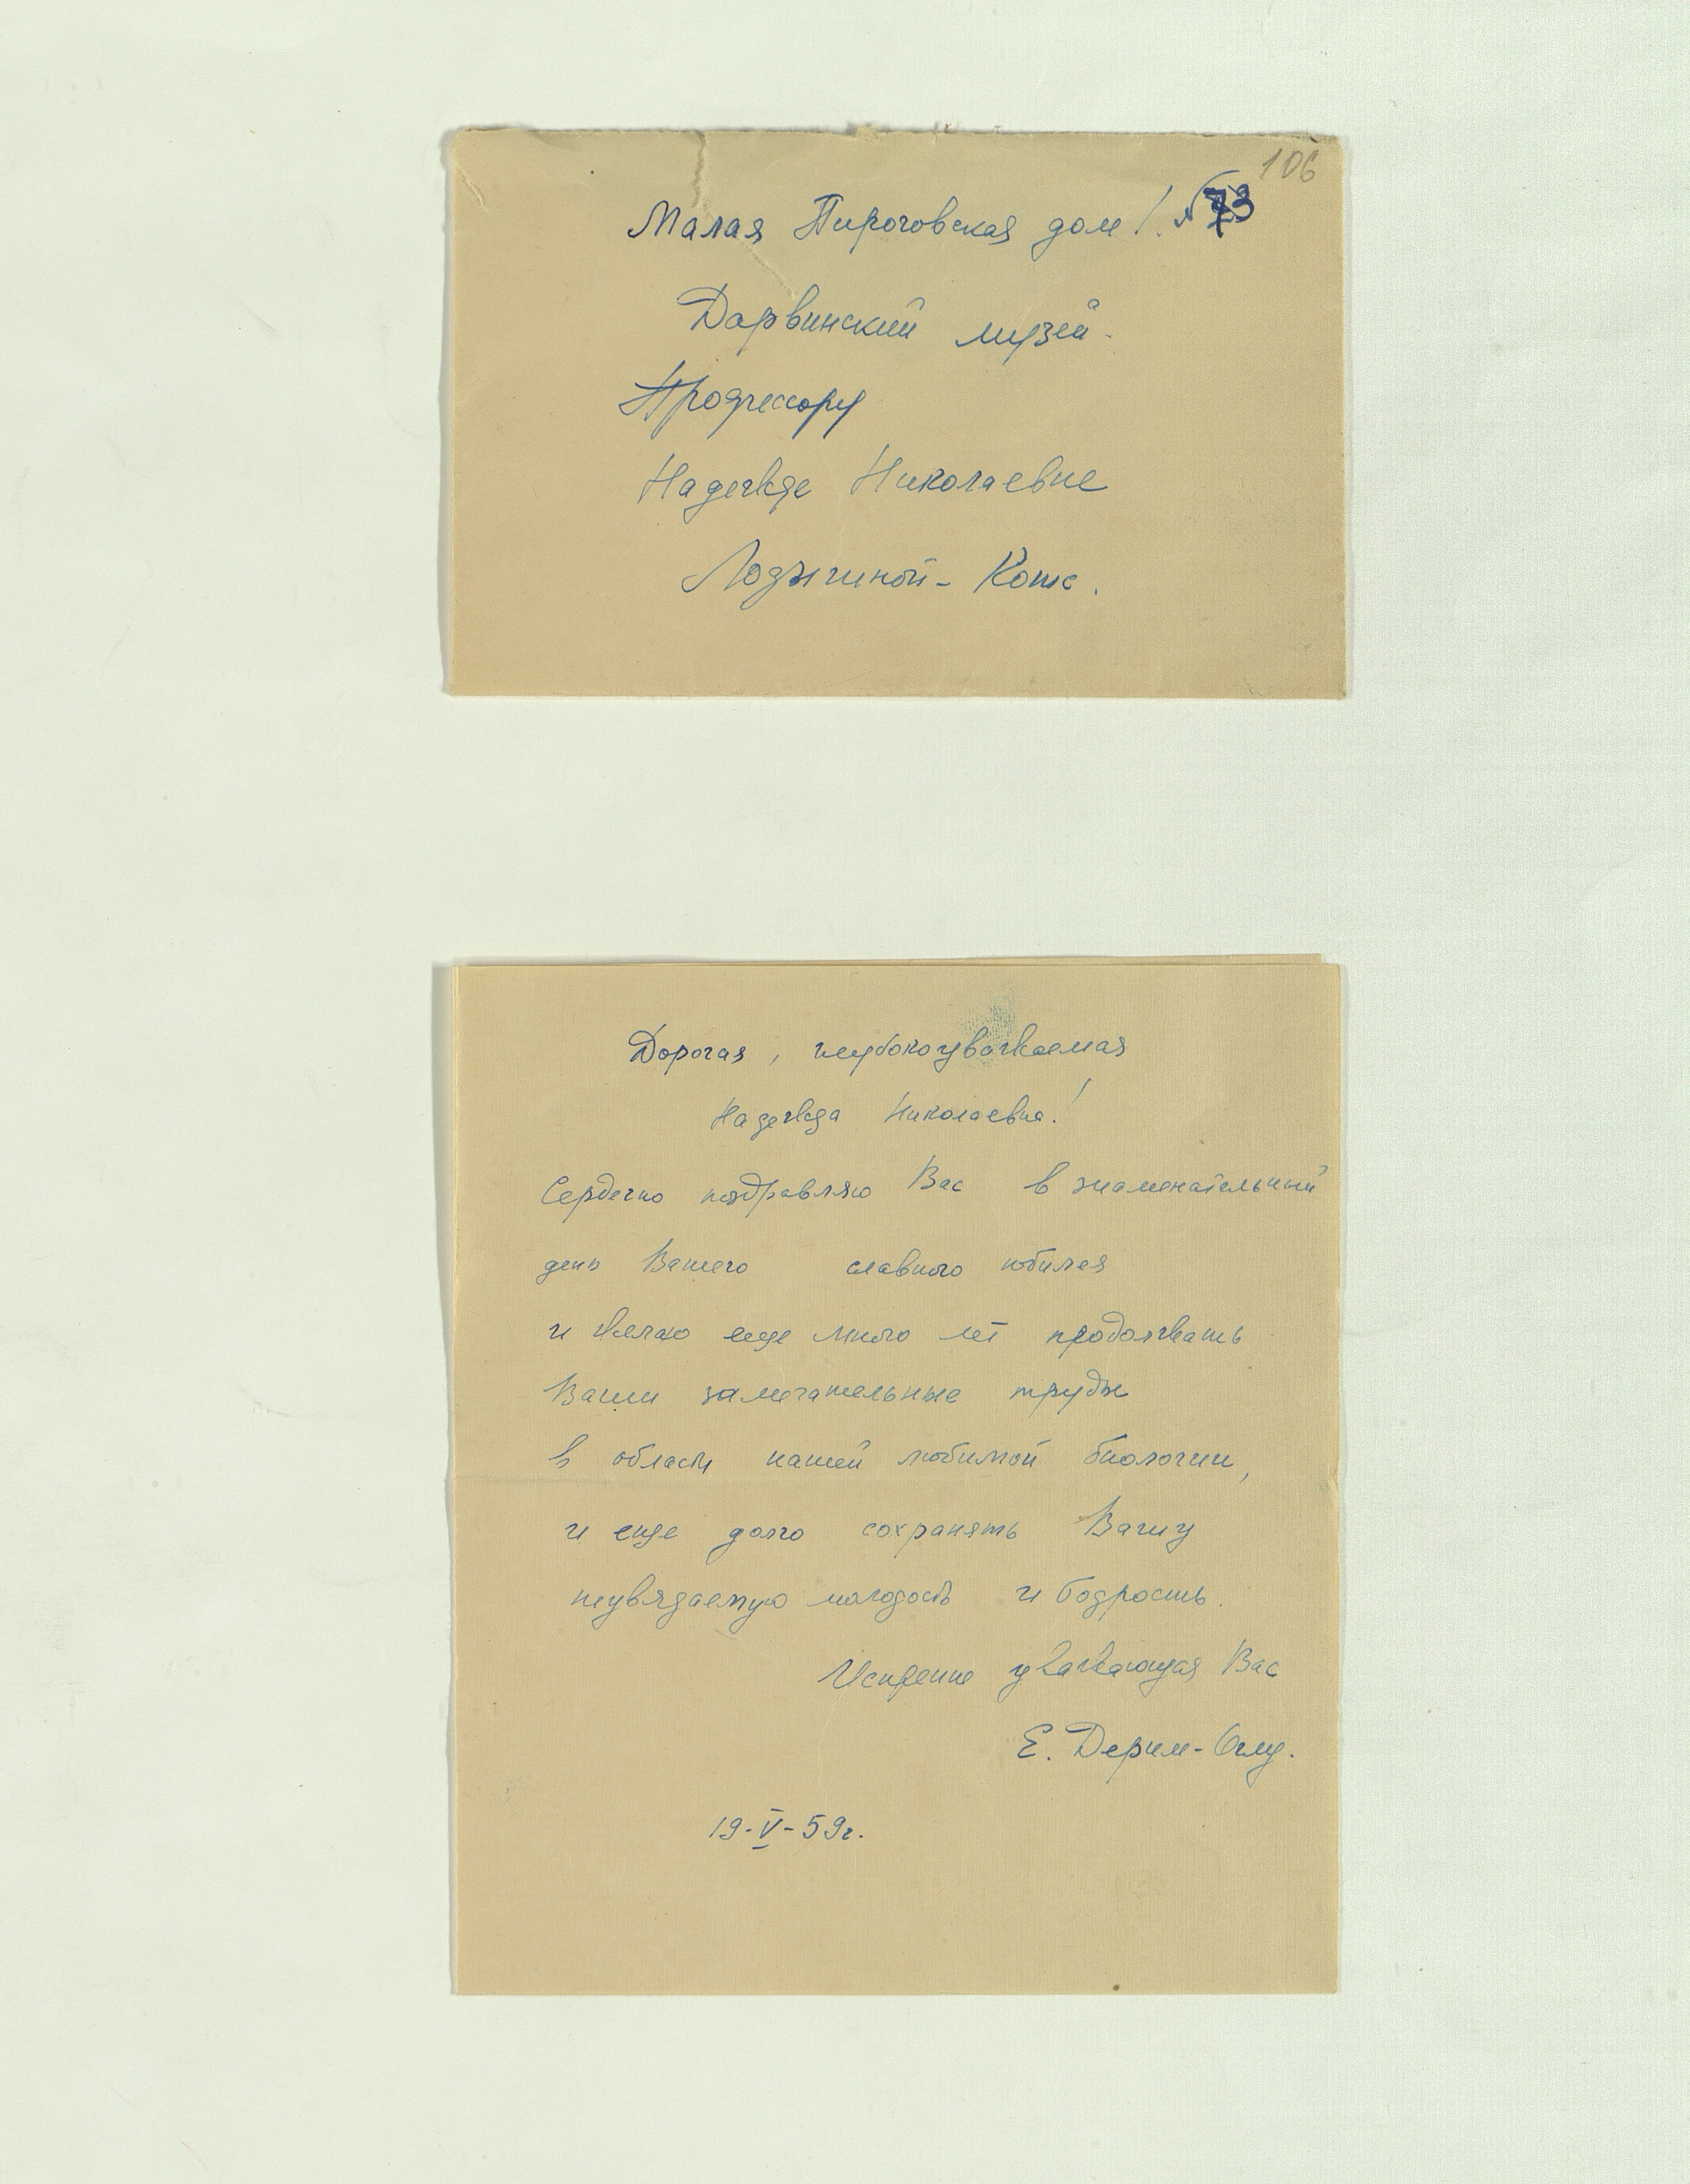 106
Малая Пироговская дом 1. № 73
Дарвинский музей.
Профессору
Надежде Николаевне
Ладыгиной - Котс.
Дорогая, глубокоуважаемая
Надежда Николаевна!
Сердечно поздравляю Вас в знаменательный
день Вашего славного юбилея
и желаю еще много лет продолжать
Ваши замечательные труды
в области нашей любимой биологии,
и еще долго сохранять Вашу
неувядаемую молодость и бодрость.
Искренне уважающая Вас
Е. Дерим-Оглу.
19-V-59г.